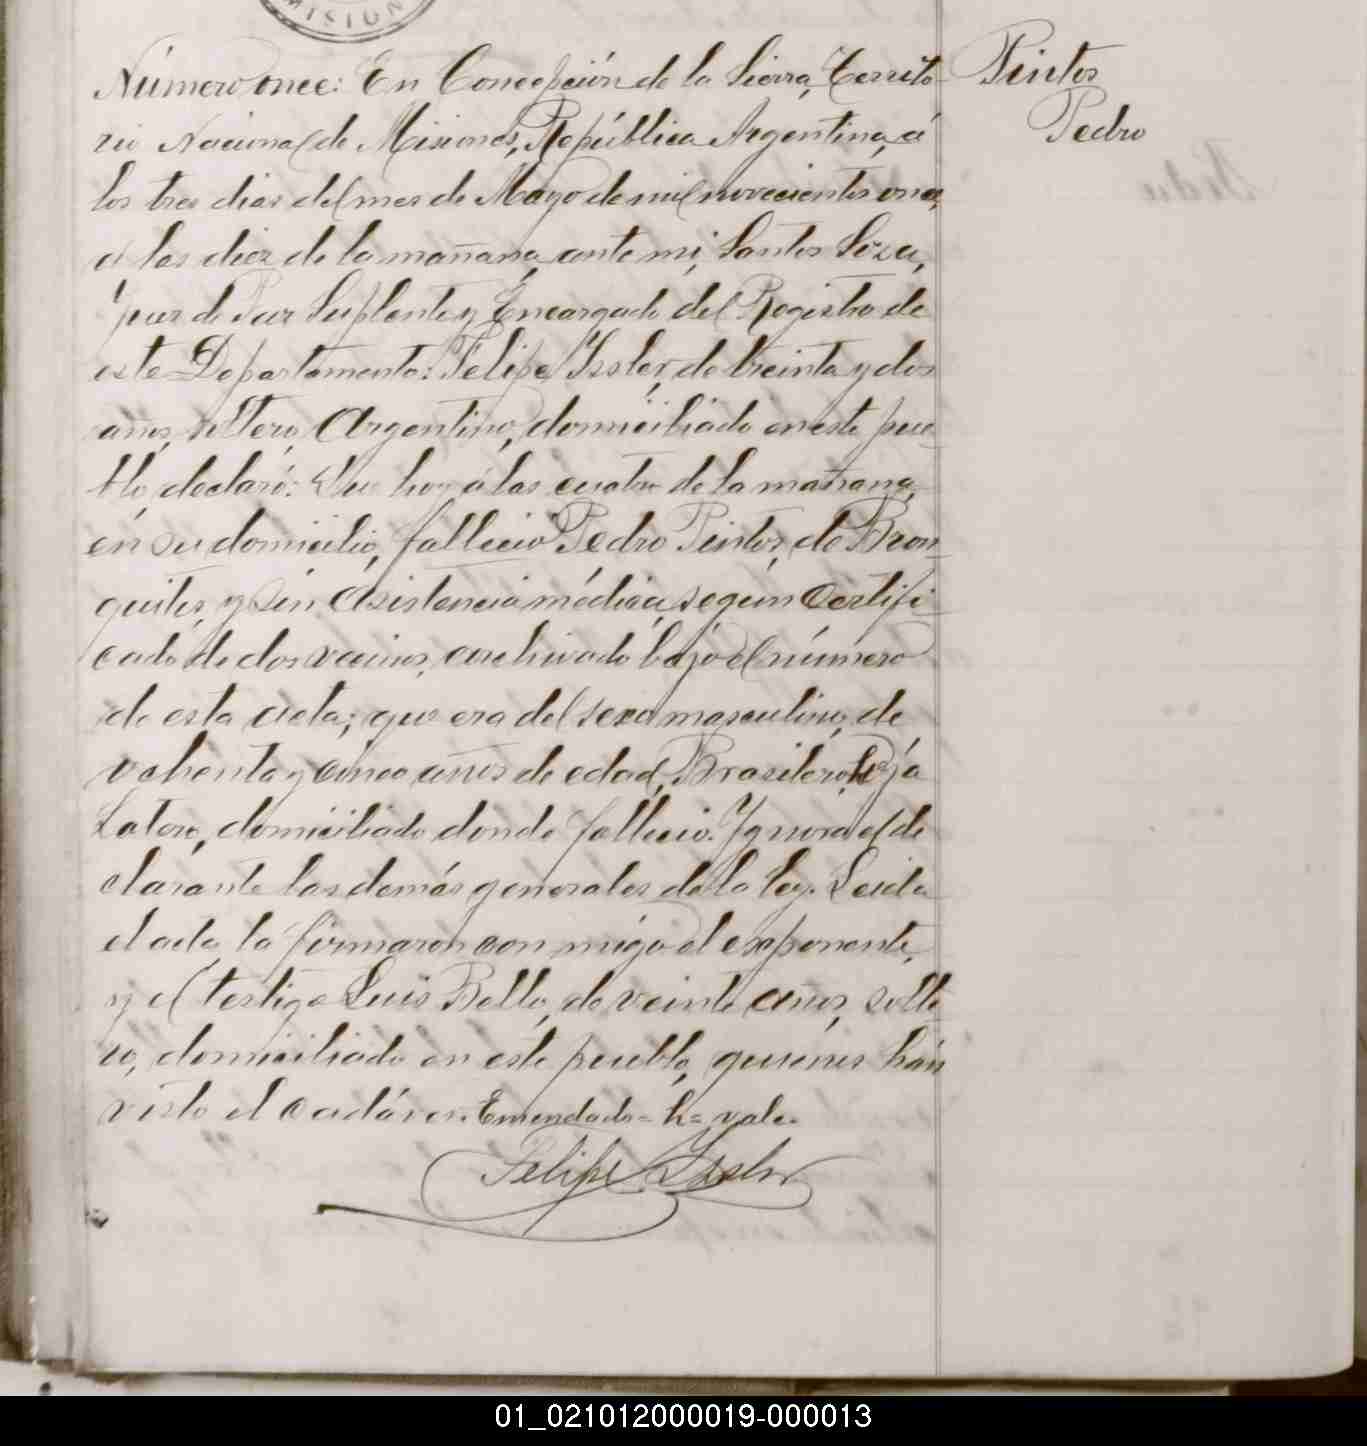 MISION
Número once: En Concepción de la Sierra, Territo-
rio Nacional de Misiones, República Argentina, á
los tres dias del mes de Mayo de mil novecientos once,
á las diez de la mañana, ante mi, Santos Soza,
Juez de Paz Suplente y Encargado del Registro de
este Departamento: Felipe Yssler, de treinta y dos
años, soltero, Argentino, domiciliado en este pue-
blo, declaró: Que hoy á las cuatro de la mañana,
en su domicilio, falleció Pedro Pintos, de Bron-
quitis, y sin asistencia médica, según certifi-
cado de dos vecinos, archivado bajo el número
de esta acta; que era del sexo masculino, de
ochenta y cinco años de edad, Brasilero, Hoja
Latero, domiciliado donde falleció. Ygnora el de-
clarante las demás generales de la ley. Leida
el acta, la firmaron con migo el exponente,
y el testigo Luis Bello, de veinte años, solte-
ro, domiciliado en este pueblo, quienes hán
visto el cadáver. Emendado = h = vale.
Felipe Yssler
Pintos
Pedro
01_021012000019-000013